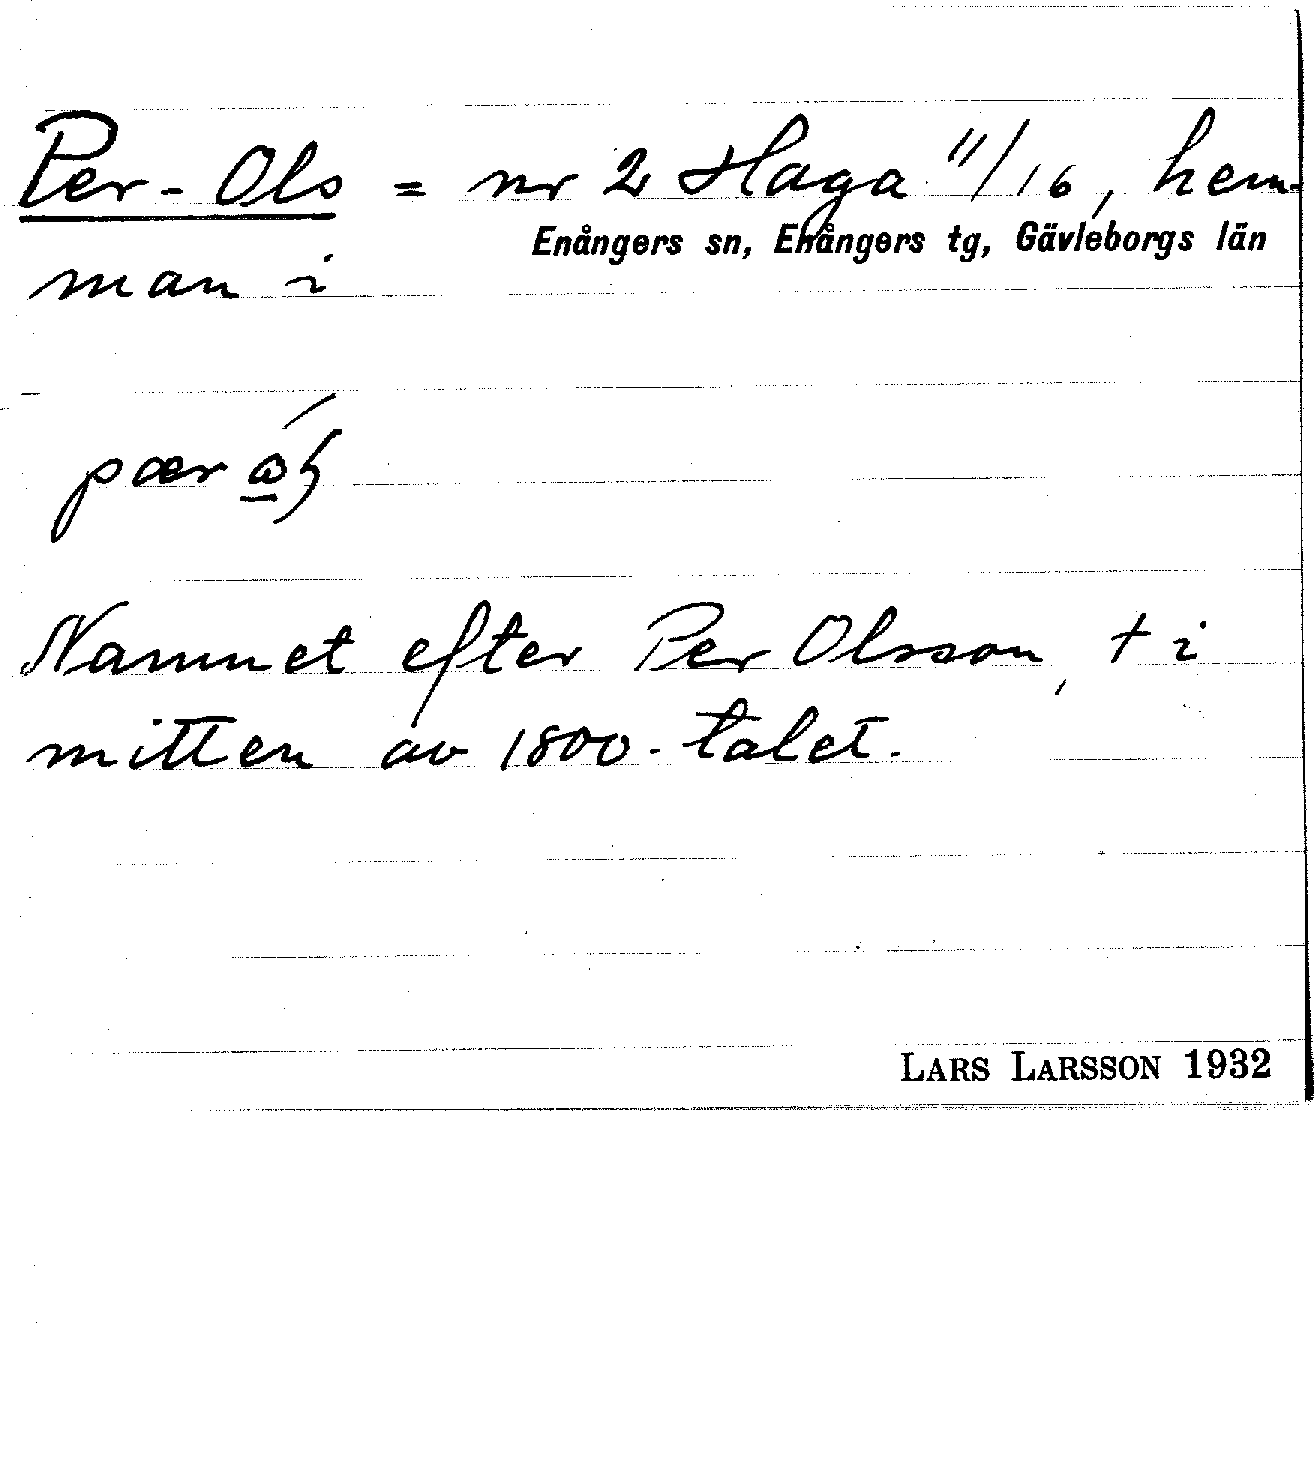 Per-Ols = nr 2 Haga 11/16, hem-
Enångers sn, Enångers tg, Gävleborgs län
man i
pær
Namnet efter Per Olsson, † i
mitten av 1800-talet.
LARS LARSSON 1932